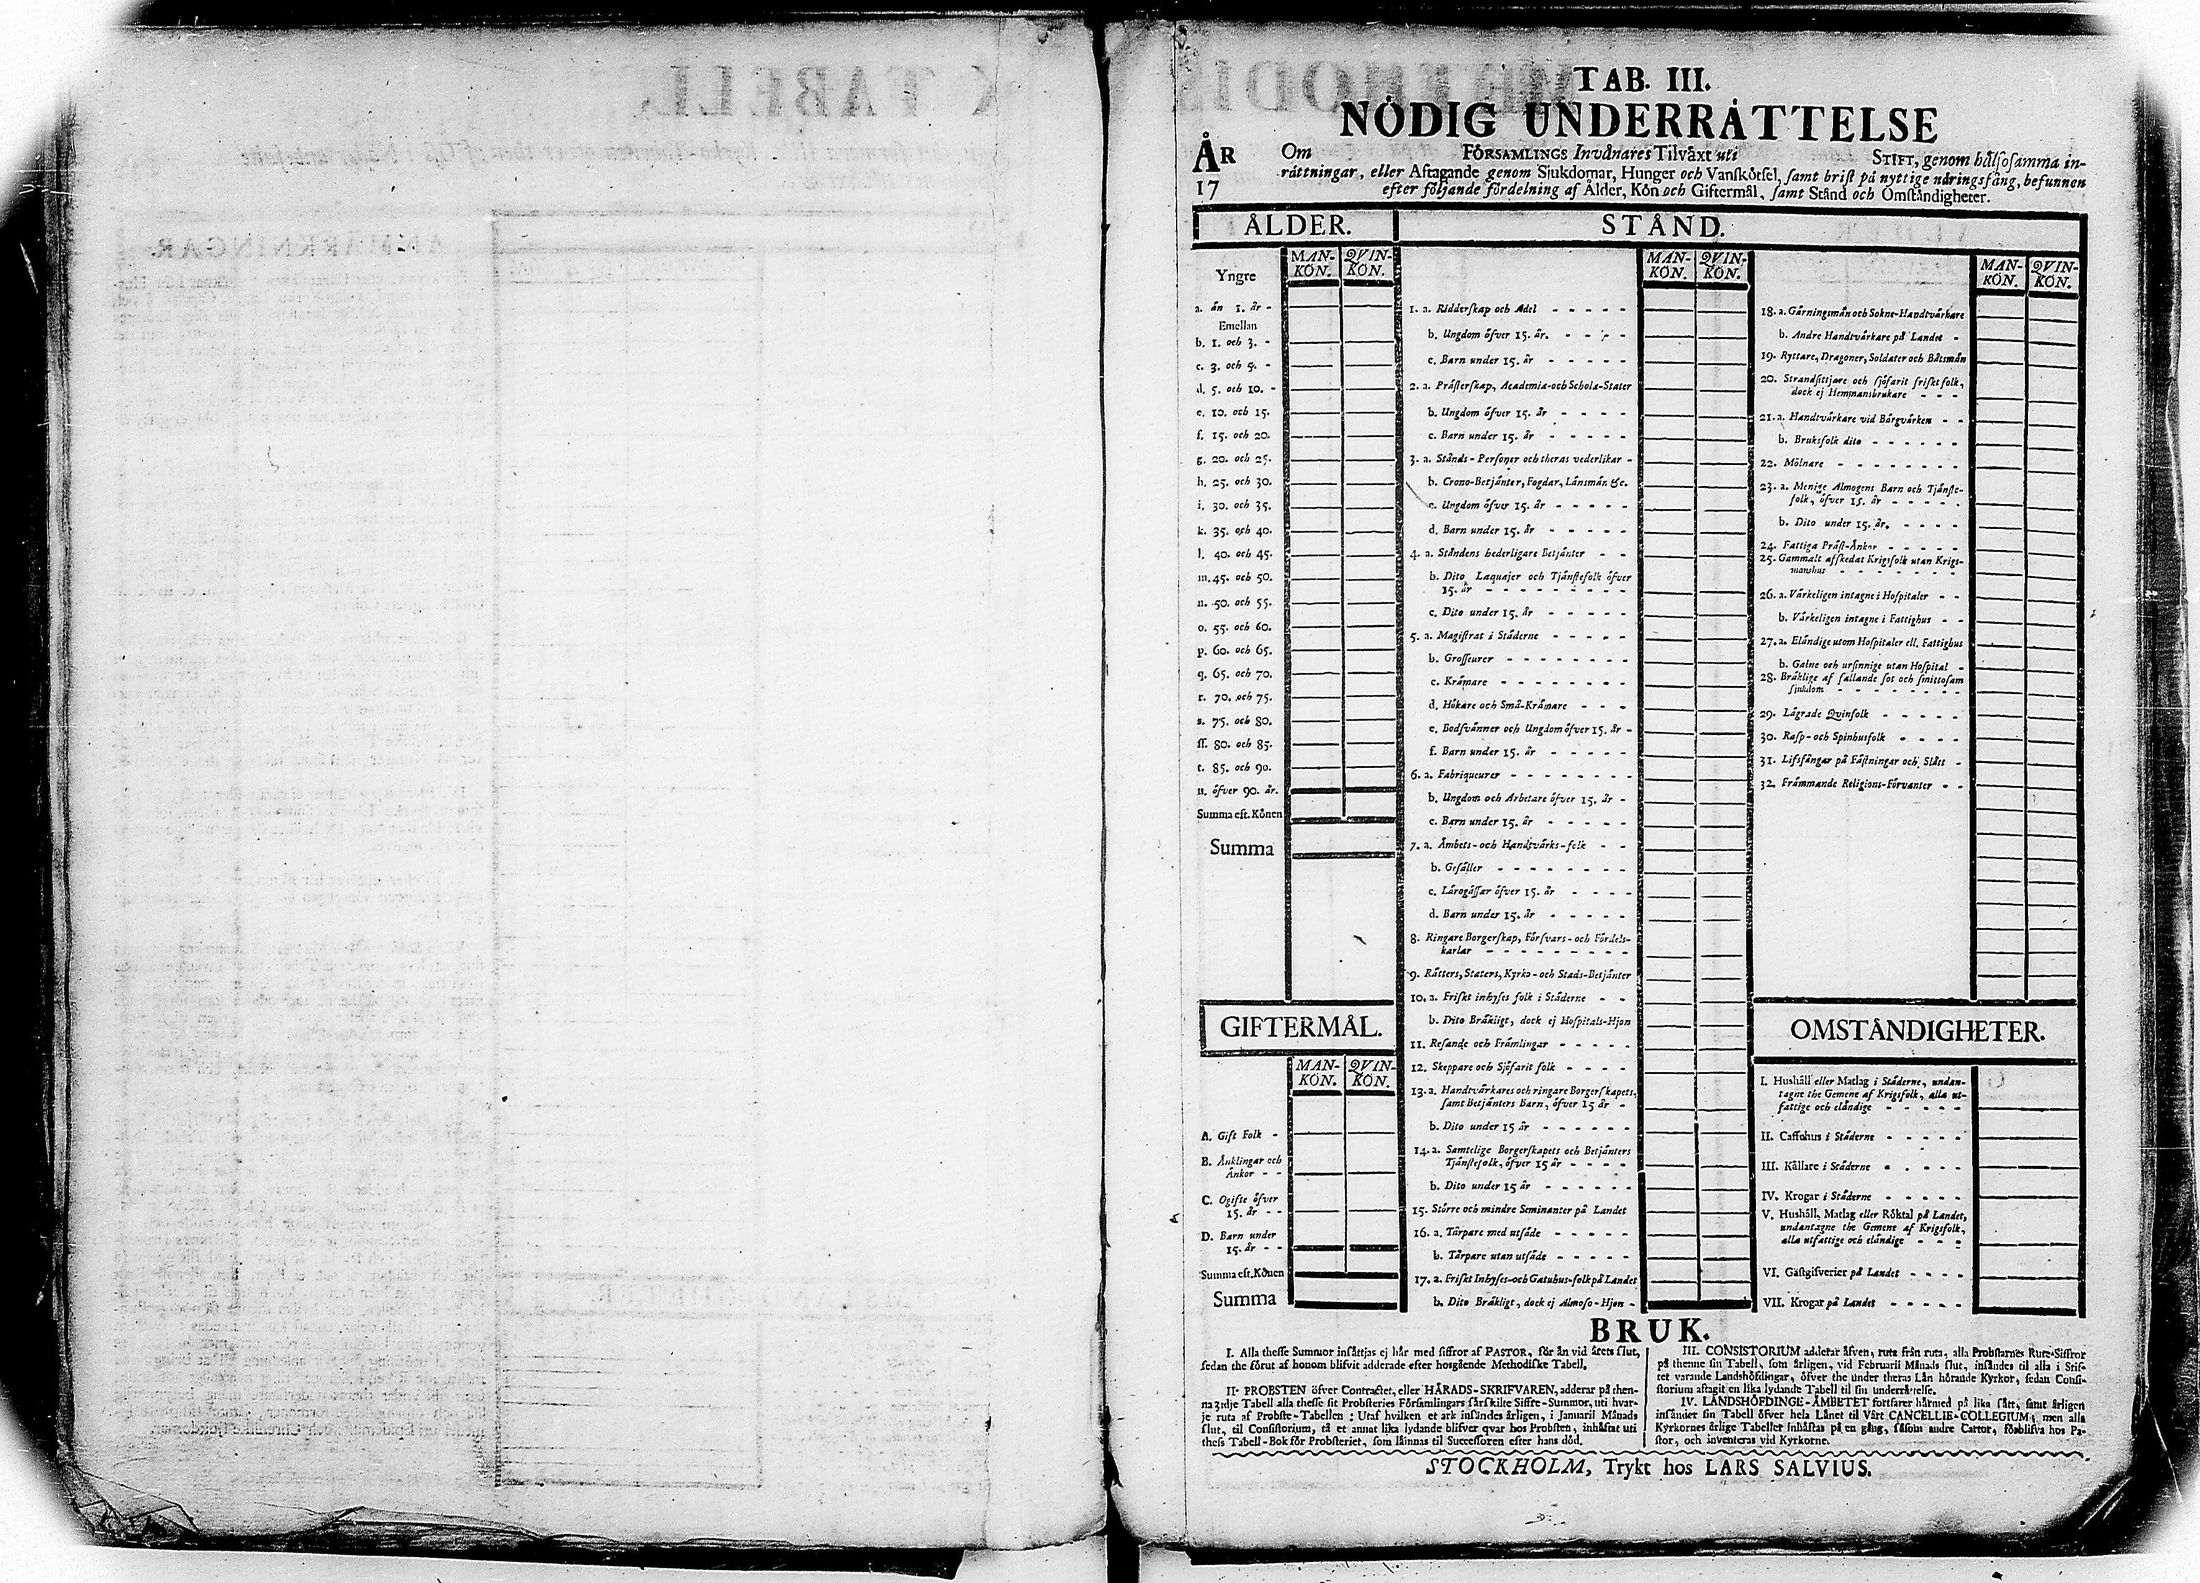 TAB. III.
NÖDIG UNDERRÄTTELSE
ÅR
17
Om FÖRSAMLINGS Invånares Tilväxt uti STIFT, genom hälsosamma in-
rättningar, eller Aftagande genom Sjukdomar, Hunger och Vanskötsel, samt brist på nyttige näringsfång, befunnen
efter följande fördelning af Ålder, Kön och Giftermål, samt Stånd och Omständigheter.
ÅLDER.
MAN-KÖN. QVIN-KÖN.
Yngre
a. än 1. år -
Emellan
b. 1. och 3. -
c. 3. och 5. -
d. 5. och 10. -
e. 10. och 15.
f. 15. och 20.
g. 20. och 25.
h. 25. och 30.
i. 30. och 35.
k. 35. och 40.
l. 40. och 45.
m. 45. och 50.
n. 50. och 55.
o. 55. och 60.
p. 60. och 65.
q. 65. och 70.
r. 70. och 75.
s. 75. och 80.
ss. 80. och 85.
t. 85. och 90.
u. öfver 90. år.
Summa eft. Könen
Summa
GIFTERMÅL.
MAN-KÖN. QVIN-KÖN.
A. Gift Folk -
B. Änklingar och
Änkor - -
C. Ogifte öfver
15. år - -
D. Barn under
15. år - -
Summa eft. Könen
Summa
STÅND.
MAN-KÖN. QVIN-KÖN.
1. a. Ridderskap och Adel - - - - -
b. Ungdom öfver 15. år. - - - -
c. Barn under 15. år - - - - -
2. a. Prästerskap, Academiæ-och Scholæ-Stater
b. Ungdom öfver 15. år - - - -
c. Barn under 15. år - - - - -
3. a. Stånds-Personer och theras vederlikar -
b. Crono-Betjänter, Fogdar, Länsmän &c.
c. Ungdom öfver 15. år - - - - -
d. Barn under 15. år - - - - -
4. a. Ståndens hederligare Betjänter - -
b. Dito, Laquajer och Tjänstefolk öfver
15. år - - - - - - - - -
c. Dito under 15. år - - - - -
5. a. Magistrat i Städerne - - - - -
b. Grosseurer - - - - - - -
c. Krämare - - - - - - -
d. Hökare och Små-Krämare - - -
e. Bodsvänner och Ungdom öfver 15. år -
f. Barn under 15. år - - - - -
6. a. Fabriqueurer - - - - - - -
b. Ungdom och Arbetare öfver 15. år -
c. Barn under 15. år - - - - -
7. a. Ämbets-och Handtvärks-folk - -
b. Gesäller - - - - - - -
c. Lärogåssar öfver 15. år - - - -
d. Barn under 15. år - - - - -
8. Ringare Borgerskap, Försvars-och Fördels-
karlar - - - - - - - -
9. Rätters, Staters, Kyrko-och Stads-Betjänter
10. a. Friskt inhyses folk i Städerne - -
b. Dito Bräkligt, dock ej Hospitals-Hjon
11. Resande och Främlingar - - - - -
12. Skeppare och Sjöfarit folk - - - -
13. a. Handtvärkares och ringare Borgerskapets,
samt Betjänters Barn, öfver 15 år -
b. Dito under 15 år - - - - - -
14. a. Samtelige Borgerskapets och Betjänters
Tjänstefolk, öfver 15 år - - - -
b. Dito under 15 år - - - - - -
15. Större och mindre Seminanter på Landet
16. a. Tårpare med utsäde - - - - -
b. Tårpare utan utsäde - - - - -
17. a. Friskt Inhyses-och Gatuhus-folk på Landet
b. Dito Bräkligt, dock ej Almoso-Hjon -
MAN-KÖN. QVIN-KÖN.
18. a. Gärningsmän och Sokne-Handtvärkare
b. Andre Handtvärkare på Landet -
19. Ryttare, Dragoner, Soldater och Båtsmän
20. Strandsittjare och sjöfarit friskt folk,
dock ej Hemmansbrukare - - -
21. a. Handtvärkare vid Bärgvärken - -
b. Bruksfolk dito - - - - - -
22. Mölnare - - - - - - -
23. a. Menige Almogens Barn och Tjänste-
folk, öfver 15. år - - - - -
b. Dito under 15. år. - - - -
24. Fattiga Präst-Änkor - - - - -
25. Gammalt afskedat Krigsfolk utan Krigs-
manshus - - - - - - - -
26. a. Värkeligen intagne i Hospitaler - -
b. Värkeligen intagne i Fattighus - -
27. a. Eländige utom Hospitaler ell. Fattighus
b. Galne och ursinnige utan Hospital -
28. Bräklige af fallande sot och smittosam
sjukdom - - - - - - - -
29. Lägrade Qvinfolk - - - - -
30. Rasp-och Spinhusfolk - - - -
31. Lifsfångar på Fästningar och Slått -
32. Främmande Religions-Förvanter - -
OMSTÄNDIGHETER.
I. Hushåll eller Matlag i Städerne, undan-
tagne the Gemene af Krigsfolk, alla ut-
fattige och eländige - - - - -
II. Caffehus i Städerne - - - - -
III. Källare i Städerne - - - - -
IV. Krogar i Städerne - - - - -
V. Hushåll, Matlag eller Röktal på Landet,
undantagne the Gemene af Krigsfolk,
alla utfattige och eländige - - -
VI. Gästgifverier på Landet - - - -
VII. Krogar på Landet - - - - -
BRUK.
I. Alla thesse Summor insättjas ej här med siffror af PASTOR, för än vid årets slut,
sedan the förut af honom blifvit adderade efter hosgående Methodiske Tabell.
II. PROBSTEN öfver Contractet, eller HÄRADS-SKRIFVAREN, adderar på then-
na 3:dje Tabell alla thesse sit Probsteries Församlingars särskilte Siffre-Summor, uti hvar-
je ruta af Probste-Tabellen: Utaf hvilken et ark insändes årligen, i Januarii Månads
slut, til Consistorium, tå et annat lika lydande blifver qvar hos Probsten, inhäftat uti
thess Tabell-Bok för Probsteriet, som lämnas til Successoren efter hans död.
III. CONSISTORIUM adderar äfven, ruta från ruta, alla Probstarnes Rute-Siffror
på thenne sin Tabell, som årligen, vid Februarii Månads slut, insändes til alla i Stif-
tet varande Landshöfdingar, öfver the under theras Län hörande Kyrkor, sedan Consi-
storium aftagit en lika lydande Tabell til sin underrättelse.
IV. LANDSHÖFDINGE-ÄMBETET fortfarer härmed på lika sätt, samt årligen
insänder sin Tabell öfver hela Länet til Vårt CANCELLIE-COLLEGIUM; men alla
Kyrkornes årlige Tabeller inhäftas på en gång, såsom andre Cartor, förblifva hos Pa-
stor, och inventeras vid Kyrkorne.
STOCKHOLM, Trykt hos LARS SALVIUS.